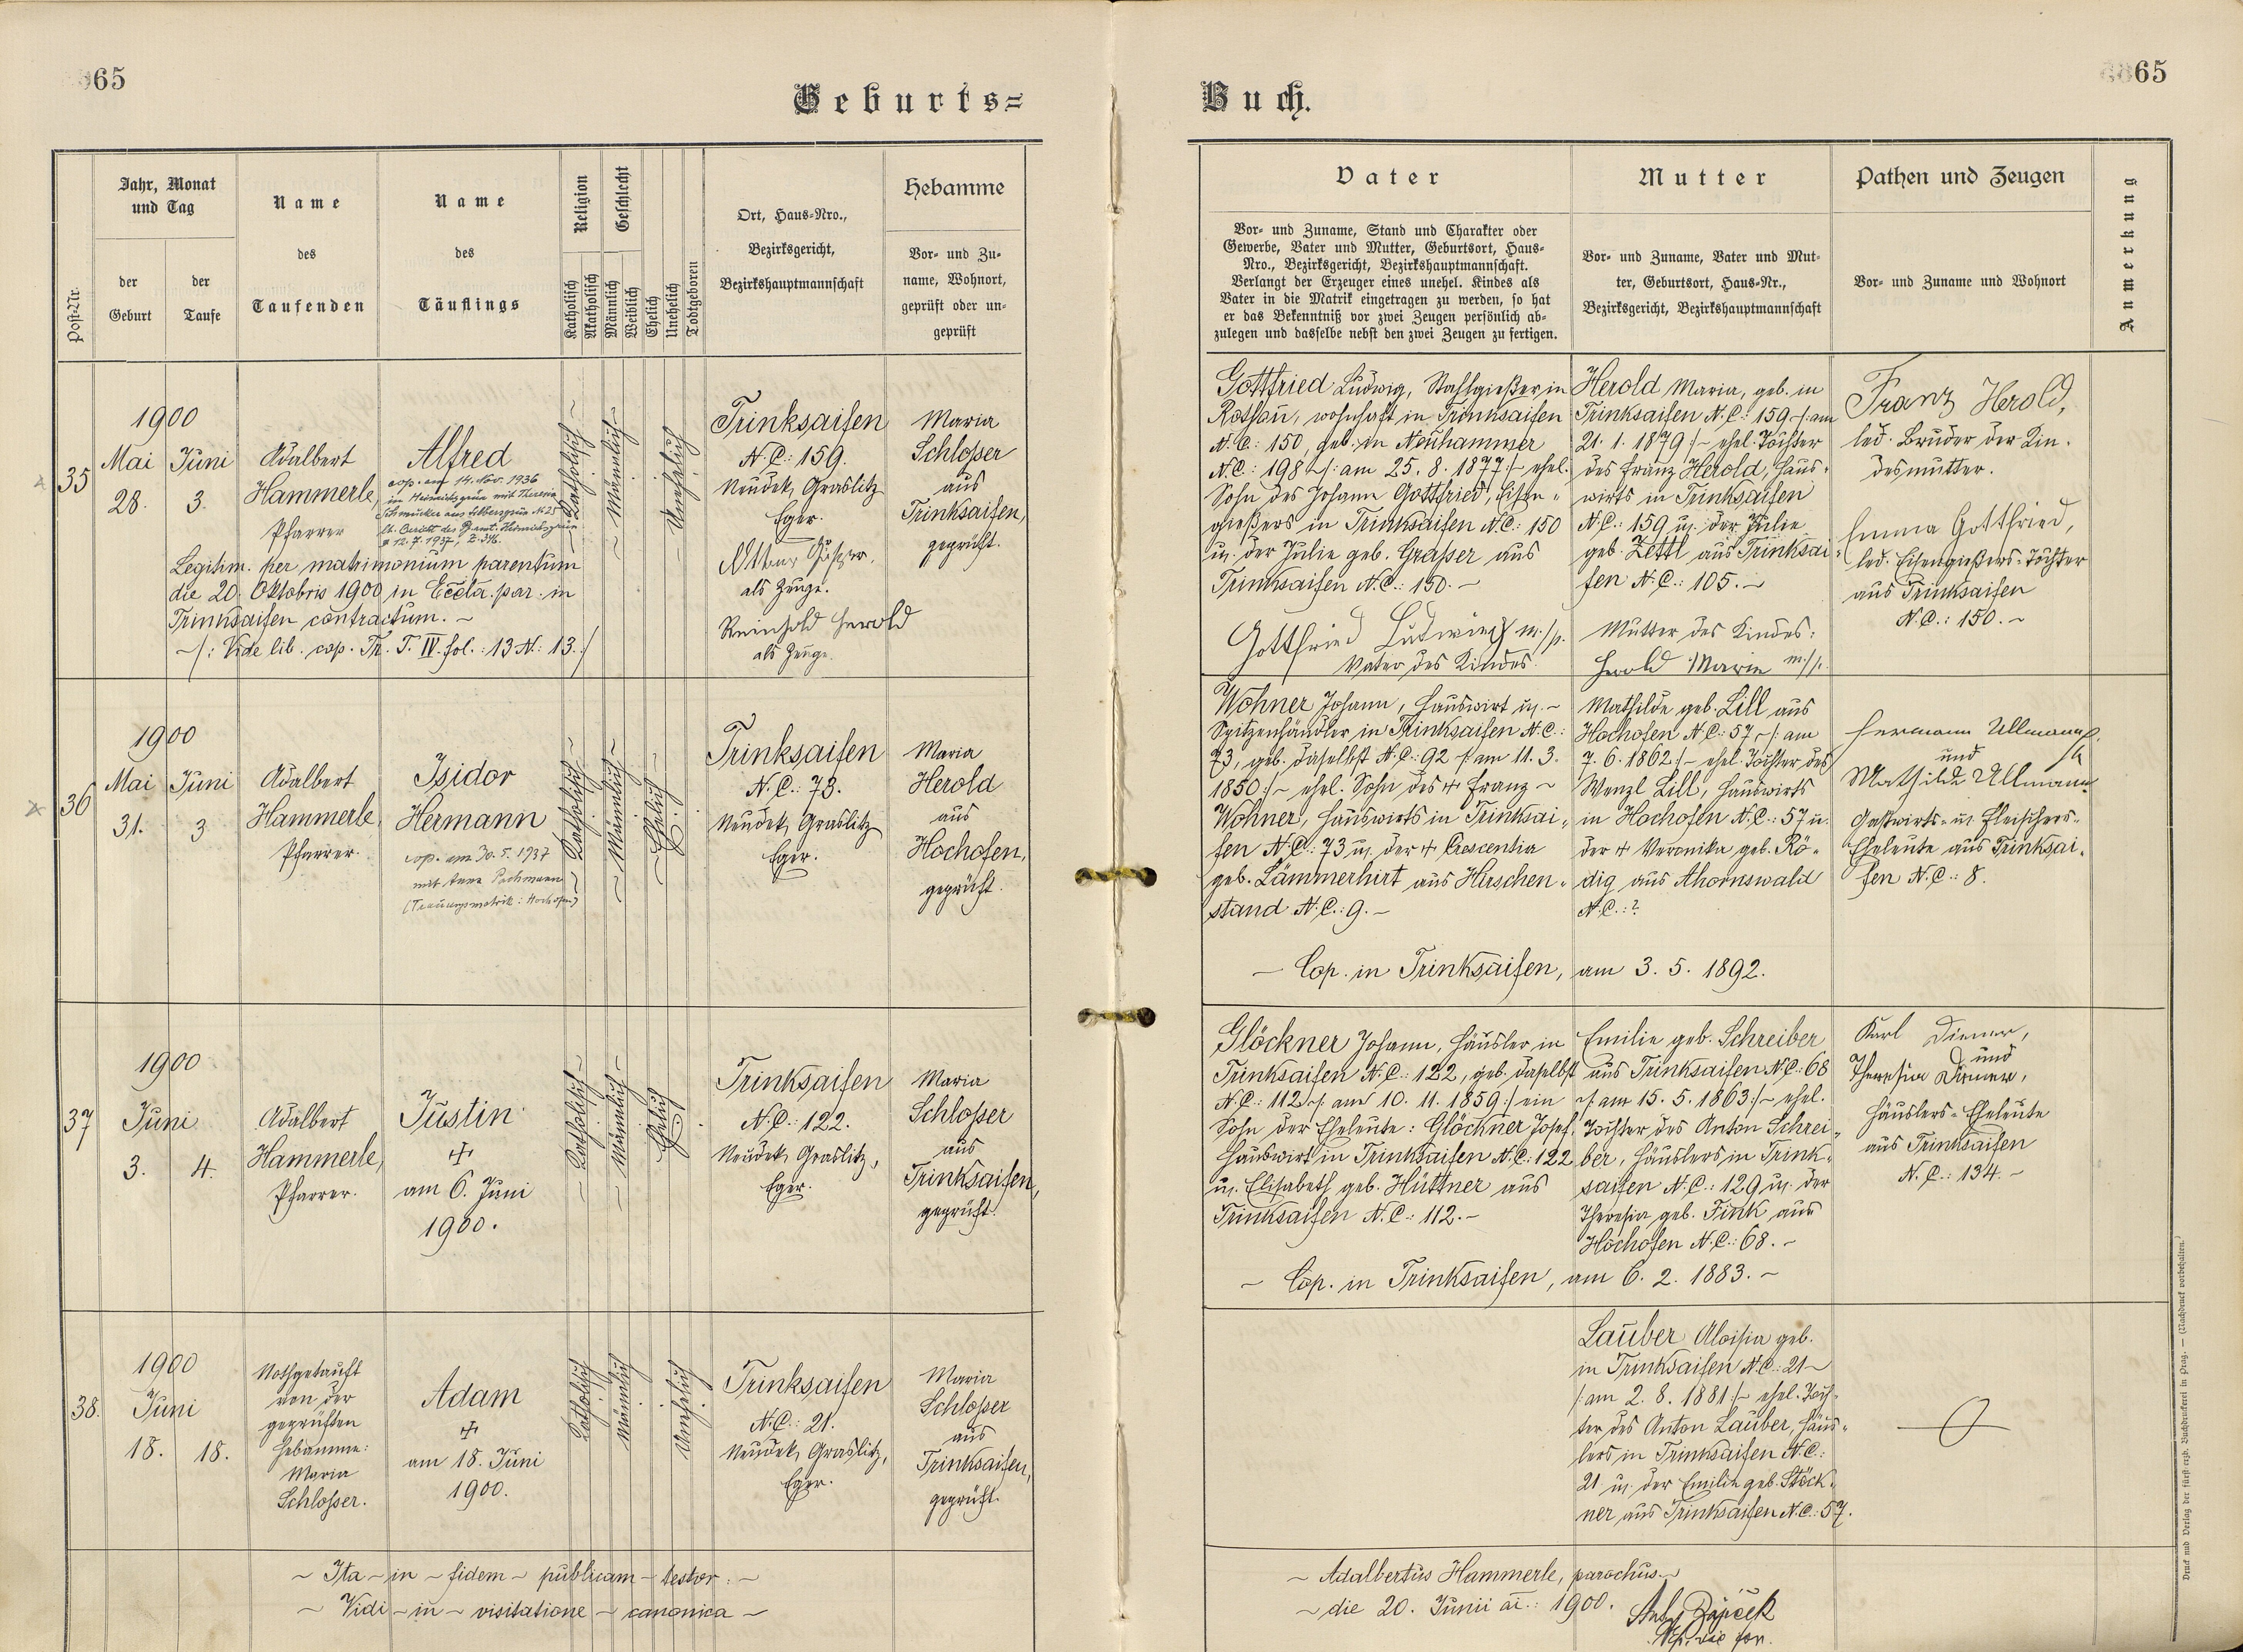 65
65
Geburts=
Buch.
Post-Nr.
Jahr, Monat
und Tag
der
Geburt
der
Taufe
Name
des
Taufenden
Name
des
Täuflings
Religion
Katholisch
Akatholisch
Geschlecht
Männlich
Weiblich
Ehelich
Unehelich
Todtgeboren
Ort, Haus-Nro.,
Bezirksgericht,
Bezirkshauptmannschaft
Hebamme
Vor- und Zu-
name, Wohnort,
geprüft oder un-
geprüft
Vater
Vor- und Zuname, Stand und Charakter oder
Gewerbe, Vater und Mutter, Geburtsort, Haus-
Nro., Bezirksgericht, Bezirkshauptmannschaft.
Verlangt der Erzeuger eines unehel. Kindes als
Vater in die Matrik eingetragen zu werden, so hat
er das Bekenntniß vor zwei Zeugen persönlich ab-
zulegen und dasselbe nebst den zwei Zeugen zu fertigen.
Mutter
Vor- und Zuname, Vater und Mut-
ter, Geburtsort, Haus-Nr.,
Bezirksgericht, Bezirkshauptmannschaft
Pathen und Zeugen
Vor- und Zuname und Wohnort
Anmerkung
35
1900
Mai
28.
Juni
3.
Adalbert
Hammerle,
Pfarrer
Alfred
cop. am 14. Nov. 1936
in Heinrichsgrün mit Theresia
Schmucker aus Silbersgrün N. 25
lt. Bericht des Pfamt. Heinrichsgrün
12.7.1937, Z. 346.
Legitim. per matrimonium parentum
die 20. Oktobris 1900 in Eccla. par. in
Trinksaifen contractum. ~
~/: Vide lib. cop. Tr. T. IV. fol.: 13 N: 13.:/
~ Katholisch ~
~ Männlich ~
~ Unehelich
Trinksaifen
N.C.: 159.
Neudek, Graslitz
Eger.
als Zeuge.
Reinhold Herold
als Zeuge.
Maria
Schlosser
aus
Trinksaifen,
geprüft.
Gottfried Ludwig, Stahlgießer in
Rothau, wohnhaft in Trinksaifen
N.C.: 150, geb. in Neuhammer
N.C.: 198 ~/: am 25. 8. 1877:/~ ehel.
Sohn des Johann Gottfried, Eisen-
gießers in Trinksaifen N.C.: 150
u. der Julie geb. Grasser aus
Trinksaifen N.C.: 150. ~
Gottfried Ludwig m./p.
Vater des Kindes.
Herold Maria, geb. in
Trinksaifen N.C.: 159. ~/: am
21. 1. 1879:/~ ehel. Tochter
des Franz Herold, Haus-
wirts in Trinksaifen
N.C.: 159 u. der Julie
geb. Zettl aus Trinksai-
fen N.C.: 105. ~
Mutter des Kindes:
Herold Marie m./p.
Franz Herold,
led. Bruder der Kin-
desmutter.
Emma Gottfried,
led. Eisengießers-Tochter
aus Trinksaifen
N.C.: 150. ~
36
1900
Mai
31.
Juni
3
Adalbert
Hammerle,
Pfarrer.
Isidor
Hermann
cop. am 30. 5. 1937
mit Anna Pachmann
(Trauungsmatrik: Hochofen)
~ Katholisch ~
~ Männlich ~
~ Ehelich ~
Trinksaifen
N.C.: 73.
Neudek, Graslitz
Eger.
Maria
Herold
aus
Hochofen,
geprüft.
Wohner Johann, Hauswirt u. ~
Spitzenhändler in Trinksaifen N.C.:
73, geb. daselbst N.C.: 92 ~/: am 11. 3.
1850:/~ ehel. Sohn des + Franz ~
Wohner, Hauswirts in Trinksai-
fen N.C.: 73 u. der + Crescentia
geb. Lämmerhirt aus Hirschen-
stand N.C.: 9. ~
Mathilde geb. Lill aus
Hochofen N.C.: 57 ~/: am
7. 6. 1862:/~ ehel. Tochter des
Wenzl Lill, Hauswirts
in Hochofen N.C.: 57 u.
der + Veronika geb. Rö-
dig aus Ahornswald
N.C.: ?
— Cop. in Trinksaifen, am 3. 5. 1892.
Hermann Ullmann
und
Mathilde Ullmann
Gastwirts- u. Fleischers-
Eheleute aus Trinksai-
fen N.C.: 8.
37
1900
Juni
3.
4.
Adalbert
Hammerle,
Pfarrer.
Justin
+
am 6. Juni
1900.
~ Katholisch ~
~ Männlich ~
Ehelich
Trinksaifen
N.C.: 122.
Neudek, Graslitz,
Eger.
Maria
Schlosser
aus
Trinksaifen,
geprüft.
Glöckner Johann, Häusler in
Trinksaifen N.C.: 122, geb. daselbst
N.C.: 112 ~/: am 10. 11. 1859:/ ein
Sohn der Eheleute: Glöckner Josef,
Hauswirt in Trinksaifen N.C.: 122
u. Elisabeth geb. Hüttner aus
Trinksaifen N.C.: 112. ~
Emilie geb. Schreiber
aus Trinksaifen N.C.: 68
~/: am 15. 5. 1863:/~ ehel.
Tochter des Anton Schrei-
ber, Häuslers in Trink-
saifen N.C.: 129 u. der
Theresia geb. Fink aus
Hochofen N.C.: 68. ~
~ Cop. in Trinksaifen, am 6. 2. 1883. ~
Karl Diener,
und
Theresia Diener,
Häuslers-Eheleute
aus Trinksaifen
N.C.: 134. ~
38.
1900
Juni
18.
18.
Nothgetauft
von der
geprüften
Hebamme:
Maria
Schlosser.
Adam
+
am 18. Juni
1900.
Katholisch
Männlich
Unehelich
Trinksaifen
N.C.: 21.
Neudek, Graslitz,
Eger.
Maria
Schlosser
aus
Trinksaifen,
geprüft.
Lauber Aloisia geb.
in Trinksaifen N.C.: 21 ~
/: am 2. 8. 1881:/~ ehel. Toch-
ter des Anton Lauber, Häus-
lers in Trinksaifen N.C.:
21 u. der Emilie geb. Stöck-
ner aus Trinksaifen N.C.: 57.
~ Ita ~ in ~ fidem ~ publicam ~ testor. ~
~ Vidi ~ in ~ visitatione ~ canonica ~
~ Adalbertus Hammerle, parochus. ~
~ die 20. Junii ai.: 1900.
Druck und Verlag der fürst erzb. Buchdruckerei in Prag. — (Nachdruck vorbehalten.)